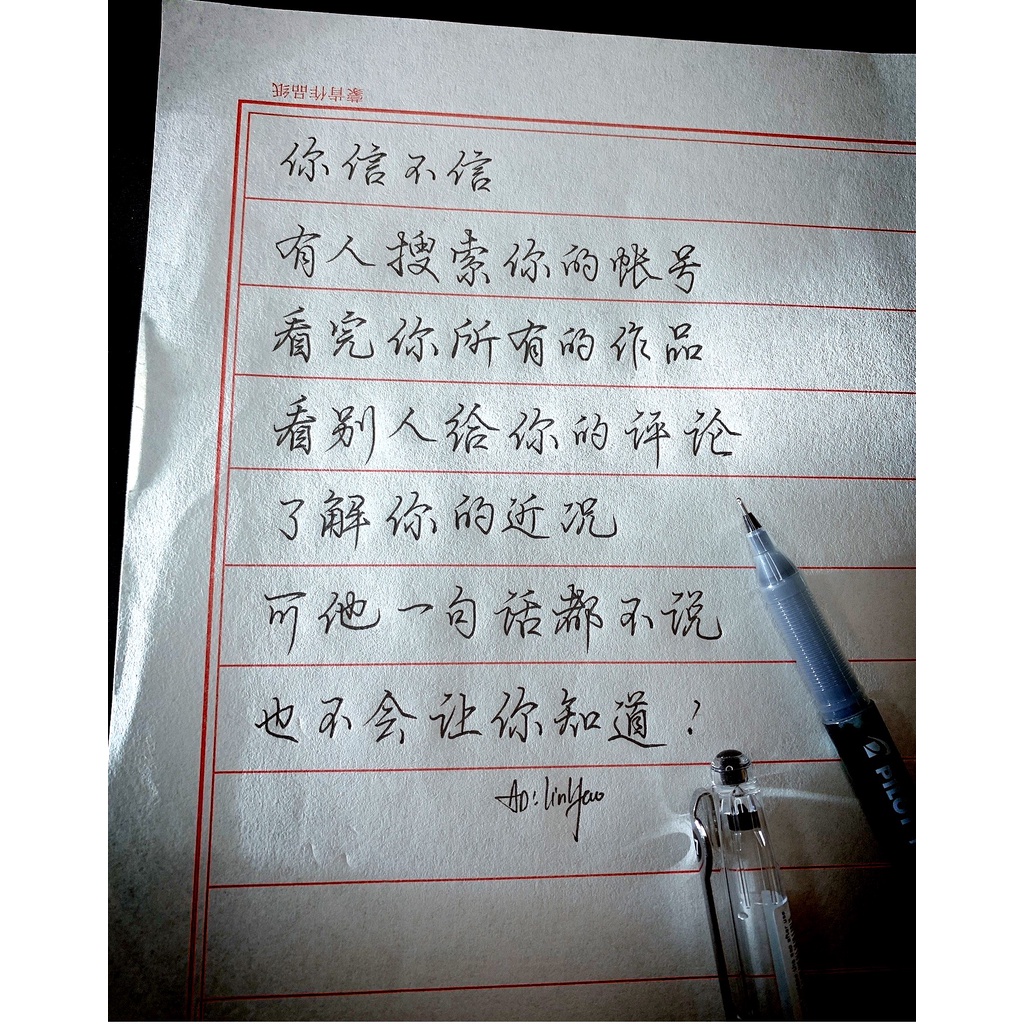 蒙肯作品纸
你信不信
有人搜索你的帐号
看完你所有的作品
看别人给你的评论
了解你的近况
可他一句话都不说
也不会让你知道？
PILOT